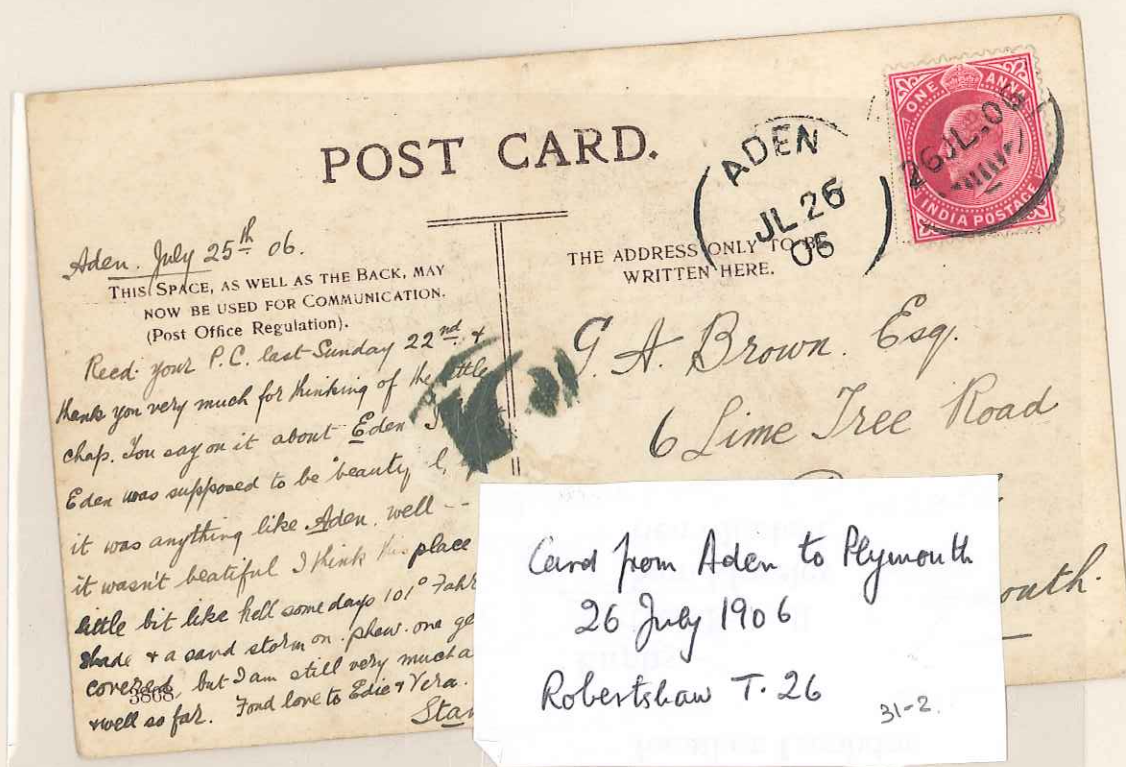 POST CARD.
ONE ANNA
INDIA POSTAGE
26 JL 06
ADEN
JL 26
06
Aden. July 25th 06.
THIS SPACE, AS WELL AS THE BACK, MAY
NOW BE USED FOR COMMUNICATION.
(Post Office Regulation).
Recd. your P.C. last Sunday 22nd. &
thank you very much for thinking of the little
chap. You say on it about Eden
Eden was supposed to be beauty
it was anything like Aden. well --
it wasn't beatiful I think this place
little bit like hell some days 101° Fahr
shade & a sand storm on. phew. one ge
covered, but I am still very much a
3868
& well so far. Fond love to Edie & Vera.
Stan
THE ADDRESS ONLY TO BE
WRITTEN HERE.
G. A. Brown. Esq.
6 Lime Tree Road
outh.
Card from Aden to Plymouth
26 July 1906
Robertshaw T. 26
31-2.